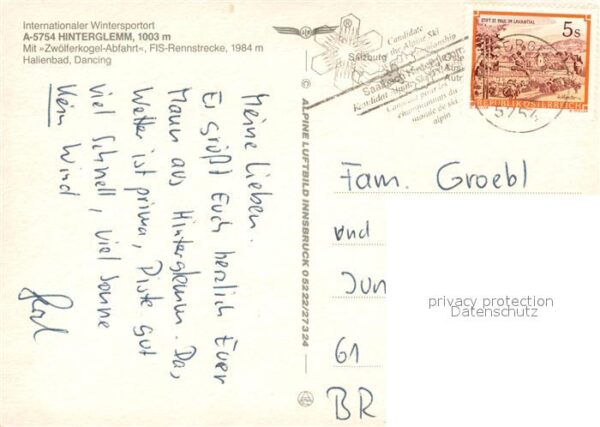 Internationaler Wintersportort
A-5754 HINTERGLEMM, 1003 m
Mit »Zwölferkogel-Abfahrt«, FIS-Rennstrecke, 1984 m
Hallenbad, Dancing
Meine Lieben.
Es grüßt Euch herzlich Euer
Mann aus Hinterglemm. Das
Wetter ist prima, Piste gut
viel Schnell, viel Sonne
Kein Wind
© ALPINE LUFTBILD INNSBRUCK 0 52 22/27 3 24
Candidate
the Alpine Ski
Salzburg
Saalbach Hinterglemm
Kandidat
championnats du
monde de ski
alpin
5754
STIFT ST. PAUL IM LAVANTTAL
5 S
REPUBLIK ÖSTERREICH
Fam. Groebl
und
Jun
61
BR
privacy protection
Datenschutz